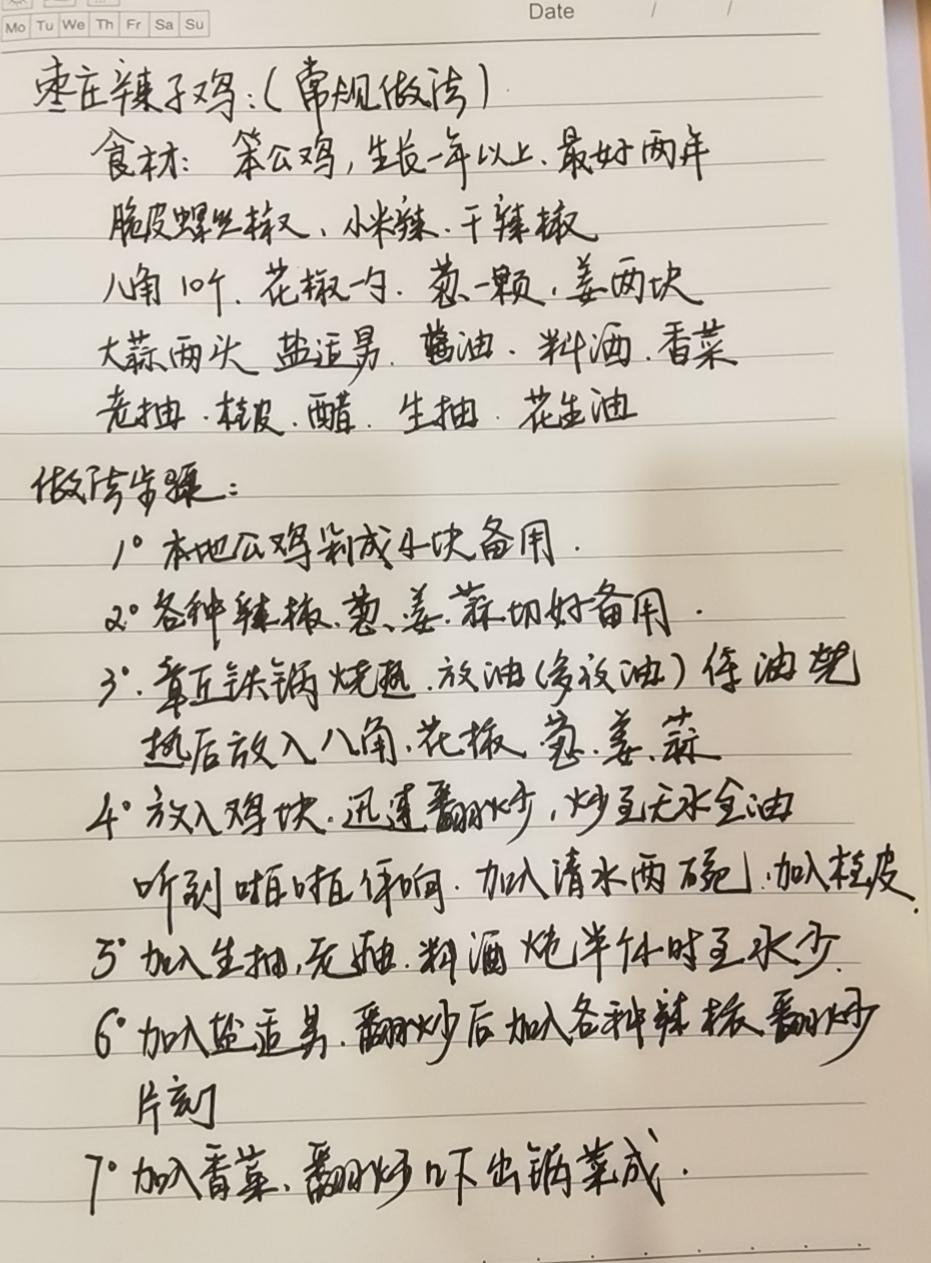 Mo Tu We Th Fr Sa Su
Date / /
枣庄辣子鸡:(常规做法)
食材: 笨公鸡,生长一年以上、最好两年
脆皮螺丝椒、小米辣.干辣椒
八角10个. 花椒一勺. 葱一颗,姜两块
大蒜两头 盐适男. 酱油. 料酒.香菜
老抽.桂皮.醋. 生抽. 花生油
做法步骤:
1° 本地公鸡剁成小块备用.
2° 各种辣椒.葱、姜.蒜切好备用.
3°.章丘铁锅烧热.放油(多放油)待油烧
热后放入八角、花椒 葱.姜.蒜
4° 放入鸡块.迅速翻炒,炒至无水全油
听到啪啪作响. 加入清水两碗.加入桂皮.
5° 加入生抽,老抽.料酒 炖半个小时至水少.
6° 加入盐适男.翻炒后加入各种辣椒翻炒
片刻
7° 加入香菜、翻炒几下出锅菜成.